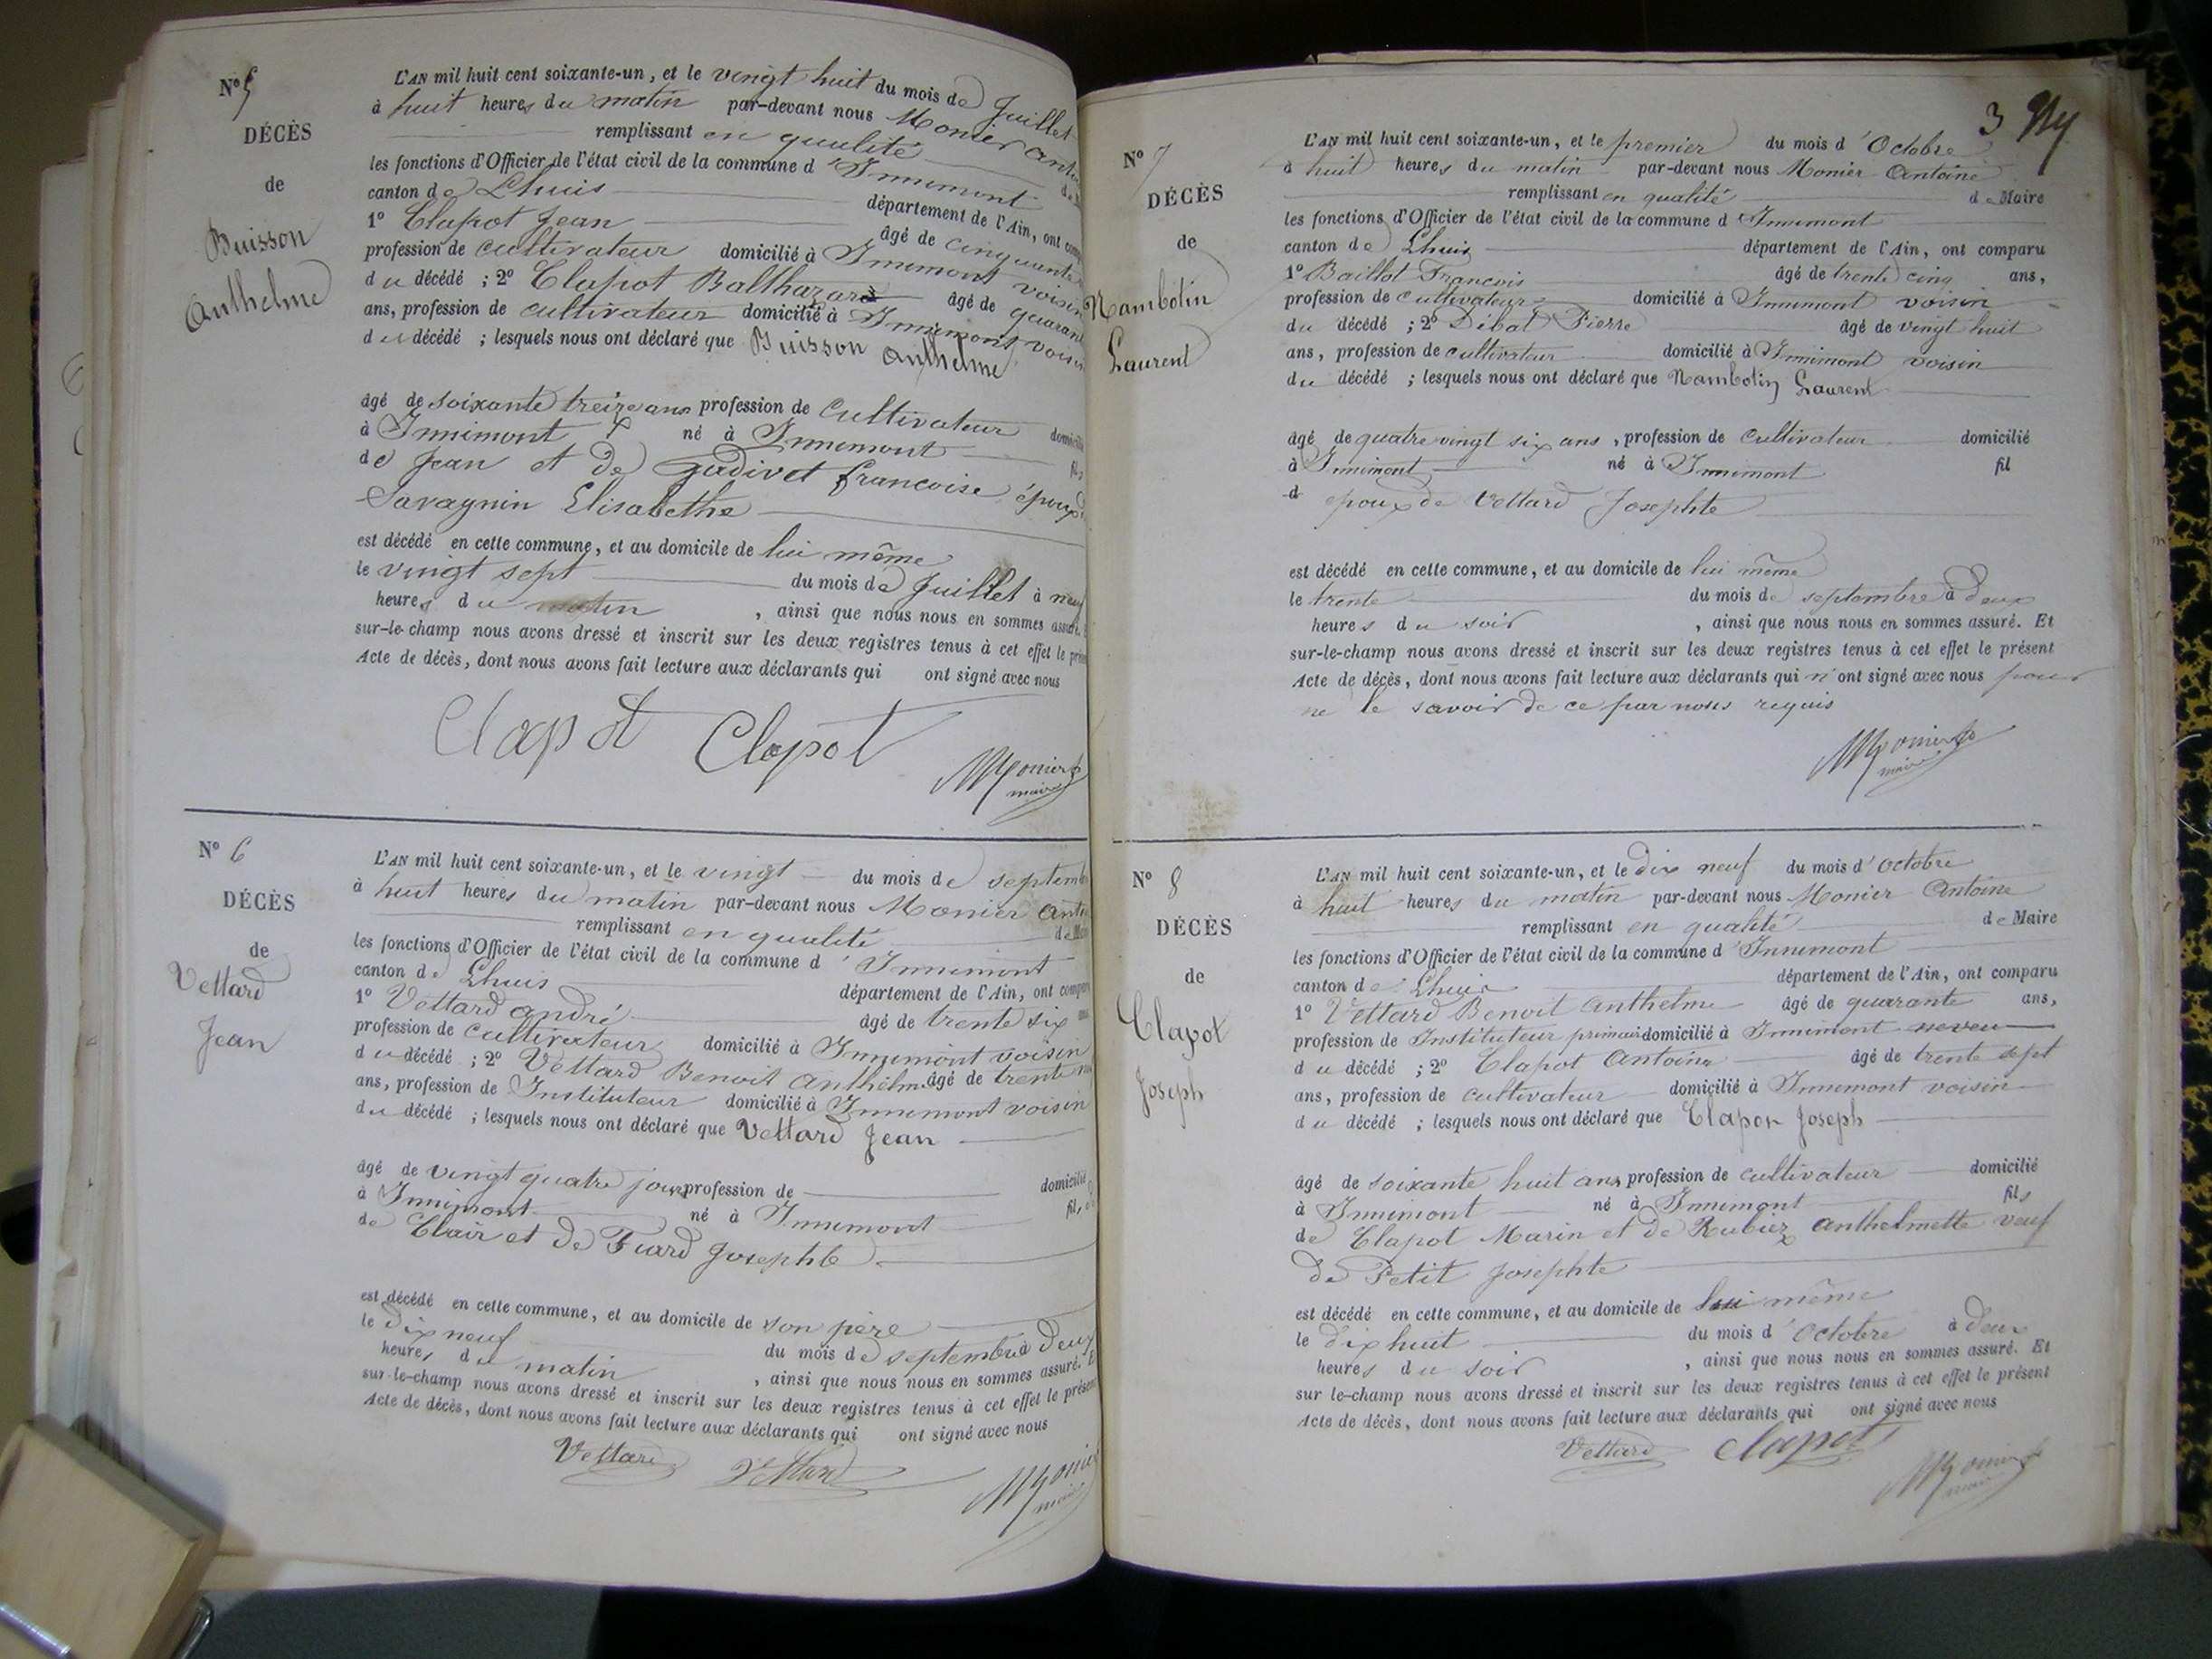 N° 5
DÉCÈS
de
Buisson
Anthelme
L'AN mil huit cent soixante-un, et le vingt huit du mois de Juillet
à huit heures du matin par-devant nous Monier
remplissant en qualité
les fonctions d'Officier de l'état civil de la commune d'Innimont
canton de Lhuis département de l'Ain, ont
1° Clapot Jean âgé de cinquante
profession de cultivateur domicilié à Innimont voisin
du décédé ; 2° Clapot Balthazard âgé de
ans, profession de cultivateur domicilié à Innimont voisin
du décédé ; lesquels nous ont déclaré que Buisson Anthelme
âgé de soixante treize ans profession de cultivateur
à Innimont né à Innimont
de Jean et de Gudivet francoise époux
Savaynin Elisabethe
est décédé en cette commune, et au domicile de lui même
le vingt sept du mois de Juillet à
heures du matin, ainsi que nous nous en sommes assuré.
sur-le-champ nous avons dressé et inscrit sur les deux registres tenus à cet effet le
Acte de décès, dont nous avons fait lecture aux déclarants qui ont signé avec nous
Clapot Clapot Monier
maire
N° 6
DÉCÈS
de
Vettard
Jean
L'AN mil huit cent soixante-un, et le vingt du mois de
à huit heures du matin par-devant nous Monier
remplissant en qualité
les fonctions d'Officier de l'état civil de la commune d'Innimont
canton de Lhuis département de l'Ain, ont
1° Vettard andré âgé de trente six
profession de cultivateur domicilié à Innimont voisin
du décédé ; 2° Vettard Benoit Anthelme âgé de trente
ans, profession de Instituteur domicilié à Innimont voisin
du décédé ; lesquels nous ont déclaré que Vettard Jean
âgé de vingt quatre jours profession de domicilié
à Innimont né à Innimont fils
de Clair et de Fiard Josephte
est décédé en cette commune, et au domicile de son père
le dix neuf du mois de septembre à deux
heures du matin, ainsi que nous nous en sommes assuré.
sur-le-champ nous avons dressé et inscrit sur les deux registres tenus à cet effet le présent
Acte de décès, dont nous avons fait lecture aux déclarants qui ont signé avec nous
Vettard Vettard Monier
maire
3
N° 7
DÉCÈS
de
Nambotin
Laurent
L'AN mil huit cent soixante-un, et le premier du mois d'Octobre
à huit heures du matin par-devant nous Monier Antoine
remplissant en qualité de Maire
les fonctions d'Officier de l'état civil de la commune d Innimont
canton de Lhuis département de l'Ain, ont comparu
1° Baillot Francois âgé de trente cinq ans,
profession de cultivateur domicilié à Innimont voisin
du décédé ; 2° Débat Pierre âgé de vingt huit
ans, profession de cultivateur domicilié à Innimont voisin
du décédé ; lesquels nous ont déclaré que Nambotin Laurent
âgé de quatre vingt six ans, profession de cultivateur domicilié
à Innimont né à Innimont fil
d époux de Vettard Josephte
est décédé en cette commune, et au domicile de lui même
le trente du mois de septembre à deux
heures du soir, ainsi que nous nous en sommes assuré. Et
sur-le-champ nous avons dressé et inscrit sur les deux registres tenus à cet effet le présent
Acte de décès, dont nous avons fait lecture aux déclarants qui n'ont signé avec nous pour
ne le savoir de ce par nous requis
Monier
maire
N° 8
DÉCÈS
de
Clapot
Joseph
L'AN mil huit cent soixante-un, et le dix neuf du mois d'Octobre
à huit heures du matin par-devant nous Monier Antoine
remplissant en qualité de Maire
les fonctions d'Officier de l'état civil de la commune d'Innimont
canton de Lhuis département de l'Ain, ont comparu
1° Vettard Benoit Anthelme âgé de quarante ans,
profession de Instituteur primaire domicilié à Innimont neveu
du décédé ; 2° Clapot Antoine âgé de trente sept
ans, profession de cultivateur domicilié à Innimont voisin
du décédé ; lesquels nous ont déclaré que Clapon Joseph
âgé de soixante huit ans profession de cultivateur domicilié
à Innimont né à Innimont fils
de Clapot Marin et de Rubiez Anthelmette veuf
de Petit Josephte
est décédé en cette commune, et au domicile de lui même
le dix huit du mois d'Octobre à deux
heures du soir, ainsi que nous nous en sommes assuré. Et
sur-le-champ nous avons dressé et inscrit sur les deux registres tenus à cet effet le présent
Acte de décès, dont nous avons fait lecture aux déclarants qui ont signé avec nous
Vettard Clapot Monier
maire